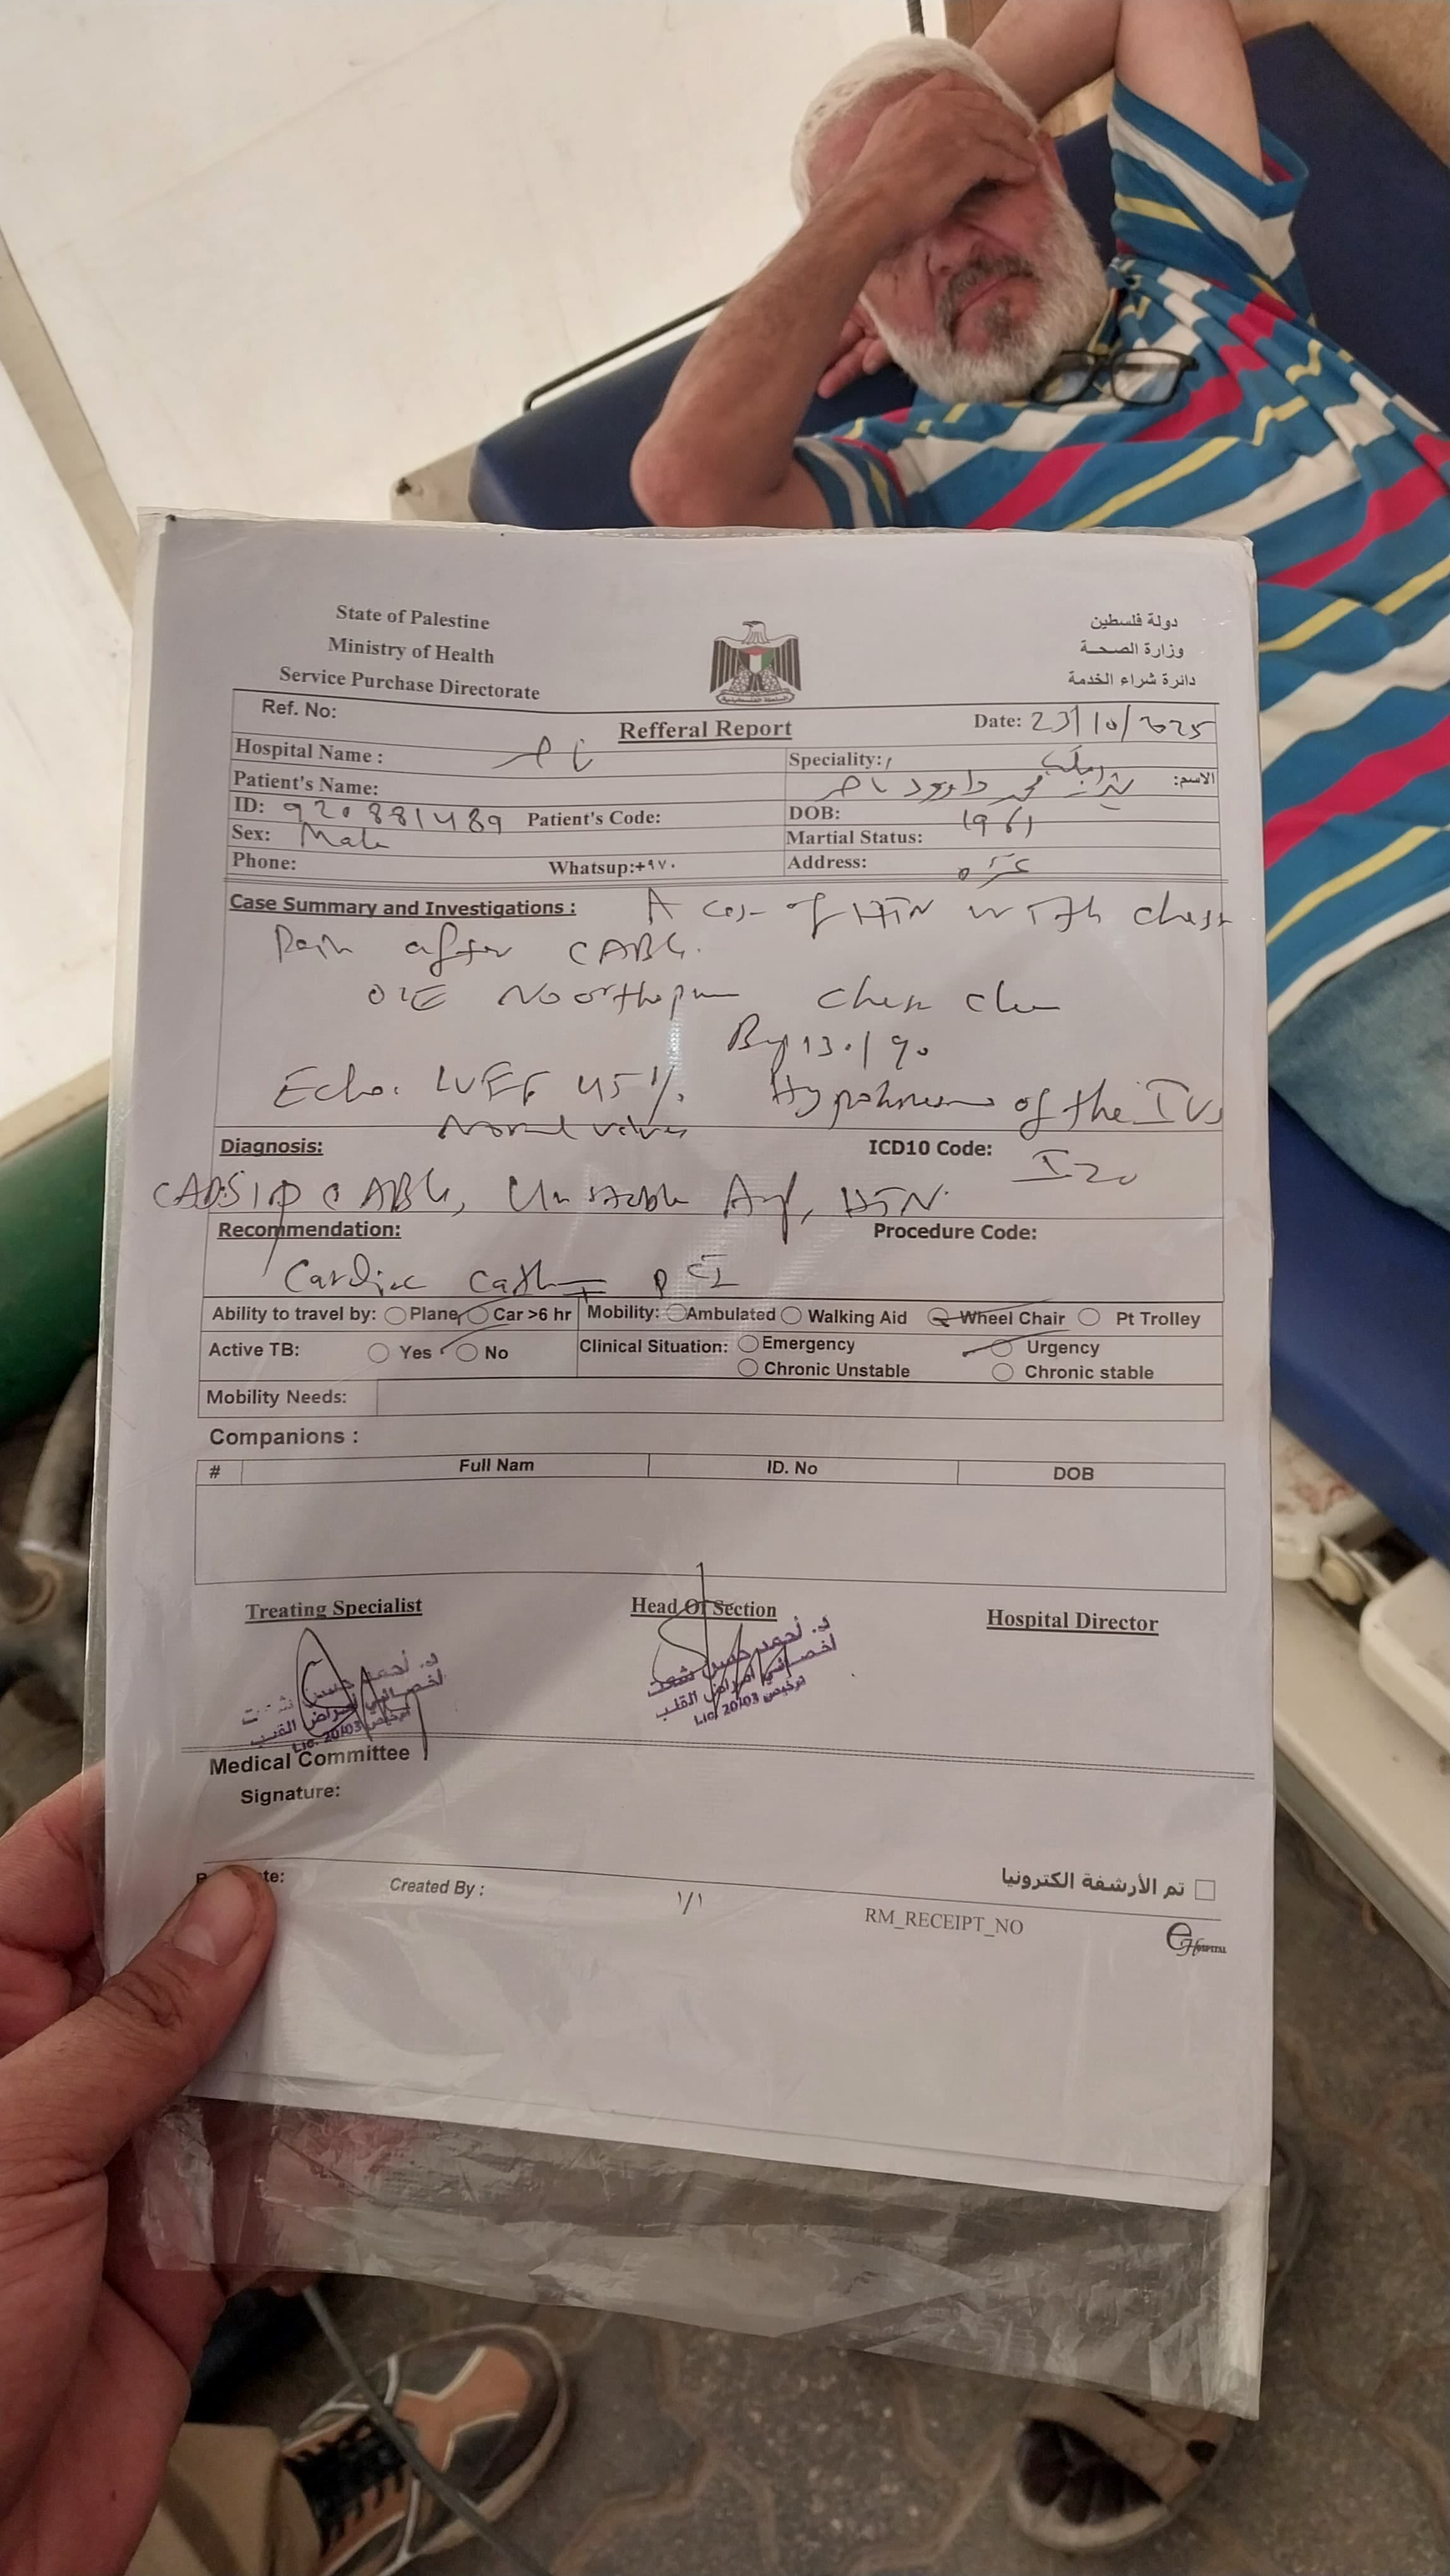 State of Palestine
Ministry of Health
Service Purchase Directorate
دولة فلسطين
وزارة الصحة
دائرة شراء الخدمة
Ref. No:
Refferal Report
Date: 23/10/2025
Hospital Name :
Speciality:
Patient's Name:
محمد داوود :الاسم
ID: 920881489 Patient's Code:
DOB: 1961
Sex: Male
Martial Status:
Phone: Whatsup:+٩٧٠
Address: غزه
Case Summary and Investigations : A case of HTN with chest
Pain after CABG.
O/E No orthopnea chest clear
Bp 130/90
Echo: LVEF 45% Hypokinesia of the IVS
Normal valves
Diagnosis:
ICD10 Code: I20
CAD S/P CABG, Unstable Ang, HTN
Recommendation:
Procedure Code:
Cardiac cath ± PCI
Ability to travel by: Plane Car >6 hr Mobility: Ambulated Walking Aid Wheel Chair Pt Trolley
Active TB: Yes No Clinical Situation: Emergency Urgency
Chronic Unstable Chronic stable
Mobility Needs:
Companions :
# Full Nam ID. No DOB
Treating Specialist
Head Of Section
Hospital Director
د. أحمد حسن
أخصائي أمراض القلب
ترخيص Lic. 20103
د. أحمد حسن شعت
أخصائي أمراض القلب
ترخيص Lic. 20103
Medical Committee
Signature:
Created By :
١/١
تم الأرشفة الكترونيا
RM_RECEIPT_NO
eHOSPITAL